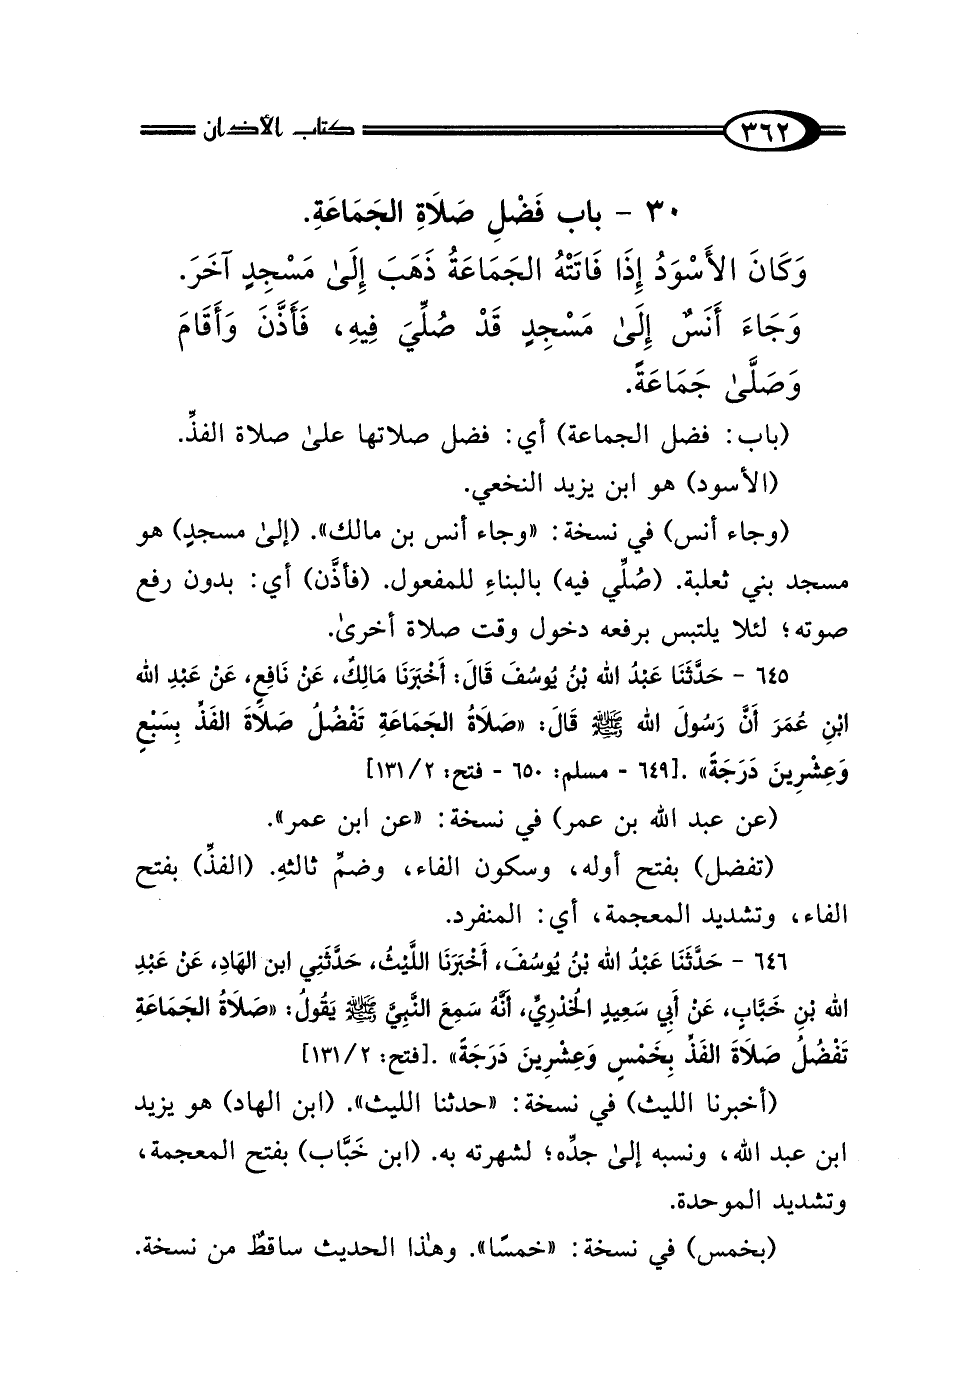 ٣٦٢ كتاب الأذان
٣٠ - باب فَضْلِ صَلَاةِ الجَمَاعَةِ.
وَكَانَ الأَسْوَدُ إِذَا فَاتَتْهُ الجَمَاعَةُ ذَهَبَ إِلَىٰ مَسْجِدٍ آخَرَ.
وَجَاءَ أَنَسٌ إِلَىٰ مَسْجِدٍ قَدْ صُلِّيَ فِيهِ، فَأَذَّنَ وَأَقَامَ
وَصَلَّىٰ جَمَاعَةً.
(باب: فضل الجماعة) أي: فضل صلاتها علىٰ صلاة الفذِّ.
(الأسود) هو ابن يزيد النخعي.
(وجاء أنس) في نسخة: «وجاء أنس بن مالك». (إلىٰ مسجدٍ) هو
مسجد بني ثعلبة. (صُلِّي فيه) بالبناءِ للمفعول. (فأذَّن) أي: بدون رفع
صوته؛ لئلا يلتبس برفعه دخول وقت صلاة أخرىٰ.
٦٤٥ - حَدَّثَنَا عَبْدُ الله بْنُ يُوسُفَ قَالَ: أَخْبَرَنَا مَالِكٌ، عَنْ نَافِعٍ، عَنْ عَبْدِ الله
ابْنِ عُمَرَ أَنَّ رَسُولَ الله ﷺ قَالَ: «صَلَاةُ الجَمَاعَةِ تَفْضُلُ صَلَاةَ الفَذِّ بِسَبْعٍ
وَعِشْرِينَ دَرَجَةً» .[٦٤٩ - مسلم: ٦٥٠ - فتح: ٢/ ١٣١]
(عن عبد الله بن عمر) في نسخة: «عن ابن عمر».
(تفضل) بفتح أوله، وسكون الفاء، وضمِّ ثالثهِ. (الفذِّ) بفتح
الفاء، وتشديد المعجمة، أي: المنفرد.
٦٤٦ - حَدَّثَنَا عَبْدُ الله بْنُ يُوسُفَ، أَخْبَرَنَا اللَّيْثُ، حَدَّثَنِي ابن الهَادِ، عَنْ عَبْدِ
الله بْنِ خَبَّابٍ، عَنْ أَبِي سَعِيدٍ الخُدْرِيِّ، أَنَّهُ سَمِعَ النَّبِيَّ ﷺ يَقُولُ: «صَلَاةُ الجَمَاعَةِ
تَفْضُلُ صَلَاةَ الفَذِّ بِخَمْسٍ وَعِشْرِينَ دَرَجَةً» .[فتح: ٢/ ١٣١]
(أخبرنا الليث) في نسخة: «حدثنا الليث». (ابن الهاد) هو يزيد
ابن عبد الله، ونسبه إلىٰ جدِّه؛ لشهرته به. (ابن خَبَّاب) بفتح المعجمة،
وتشديد الموحدة.
(بخمس) في نسخة: «خمسًا». وهٰذا الحديث ساقطٌ من نسخة.